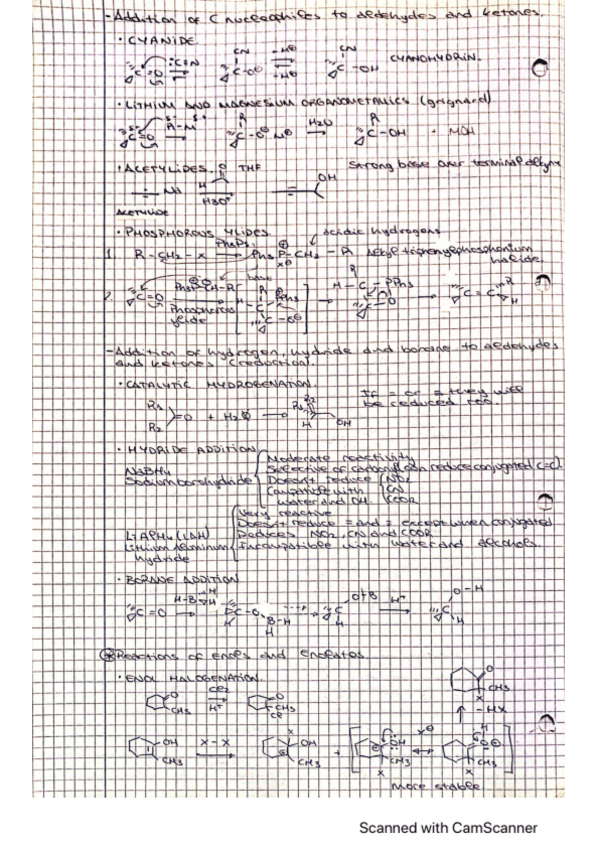 -Addition of C nucleophiles to aldehydes and ketones.
· CYANIDE.
CYANOHYDRIN.
· LITHIUM AND MAGNESIUM ORGANOMETALLICS (grignard)
R-M
H2O
C-OH + MOH
· ACETYLIDES. THF
Strong base over terminal alkyne
H3O+
OH
ACETYLIDE
· PHOSPHOROUS YLIDES
acidic hydrogens
1. R-CH2-X
Alkyl triphenylphosphonium
halide.
base
2.
Phosphorous
ylide
-Addition of hydrogen, hydride and borane to aldehydes
and ketones (reduction).
· CATALYTIC HYDROGENATION.
If = or ≡ they will
be reduced too.
R1
R2
=O + H2
OH
· HYDRIDE ADDITION
NaBH4
Sodium borohydride
Moderate reactivity
Selective of carbonyl (can reduce conjugated C=C).
Doesn't reduce NO2
CN
COOR
Compatible with
water and OH.
LiAlH4 (LAH)
Lithium aluminum
hydride
Very reactive
Doesn't reduce = and ≡ except when conjugated
Reduces NO2, CN and COOR
Incompatible with water and alcohols.
· BORANE ADDITION
C=O
H+
O-H
Reactions of enols and enolates.
· ENOL HALOGENATION.
O
CH3
Cl2
H+
O
CH3
Cl
O
CH3
X
-HX
OH
CH3
X-X
X
OH
CH3
+
more stable
Scanned with CamScanner